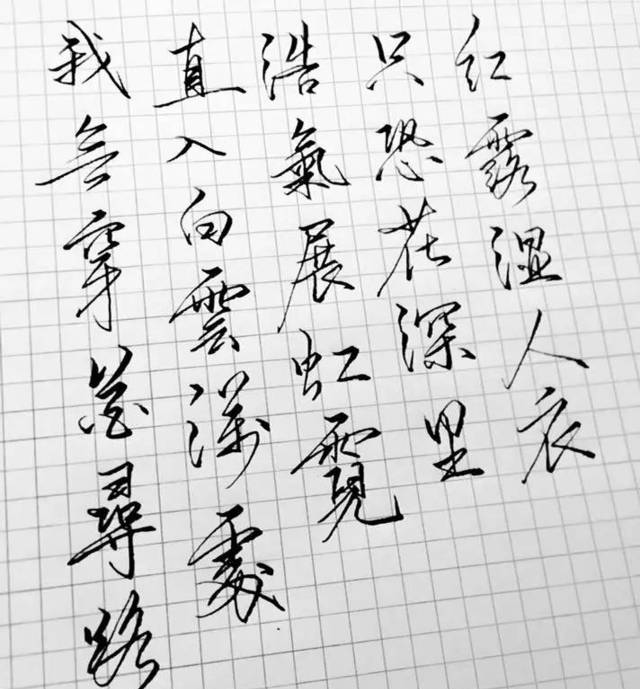 我無穿花尋路
直入白雲深處
浩氣展虹霓
只恐花深里
紅露濕人衣